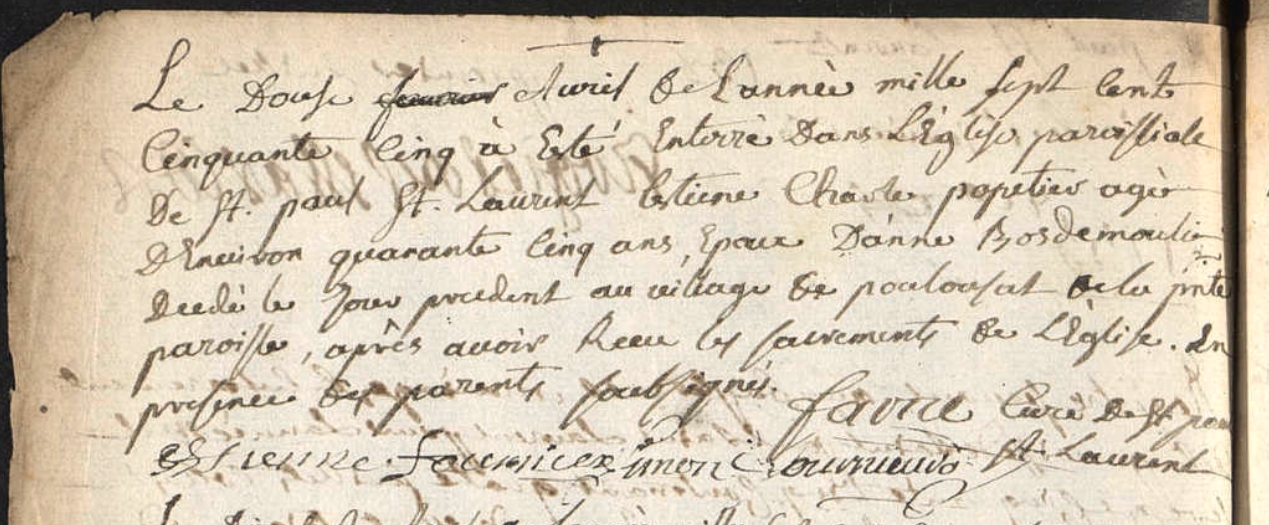 Le Douse fevrier Avril de L'année mille sept cent
Cinquante Cinq à Esté Enterrè Dans L'Église paroissiale
De St. paul St. Laurent Estiene Charle papetier agè
D'Environ quarante Cinq ans, Epoux D'anne Bosdemoulin
Decedè le Jour precedent au village de de la pnte
paroisse, après avoir Receu les sacrements de L'Église. En
presence des parents soubsignés. favre Curé de St. paul
Estienne fournier Simon St Laurent